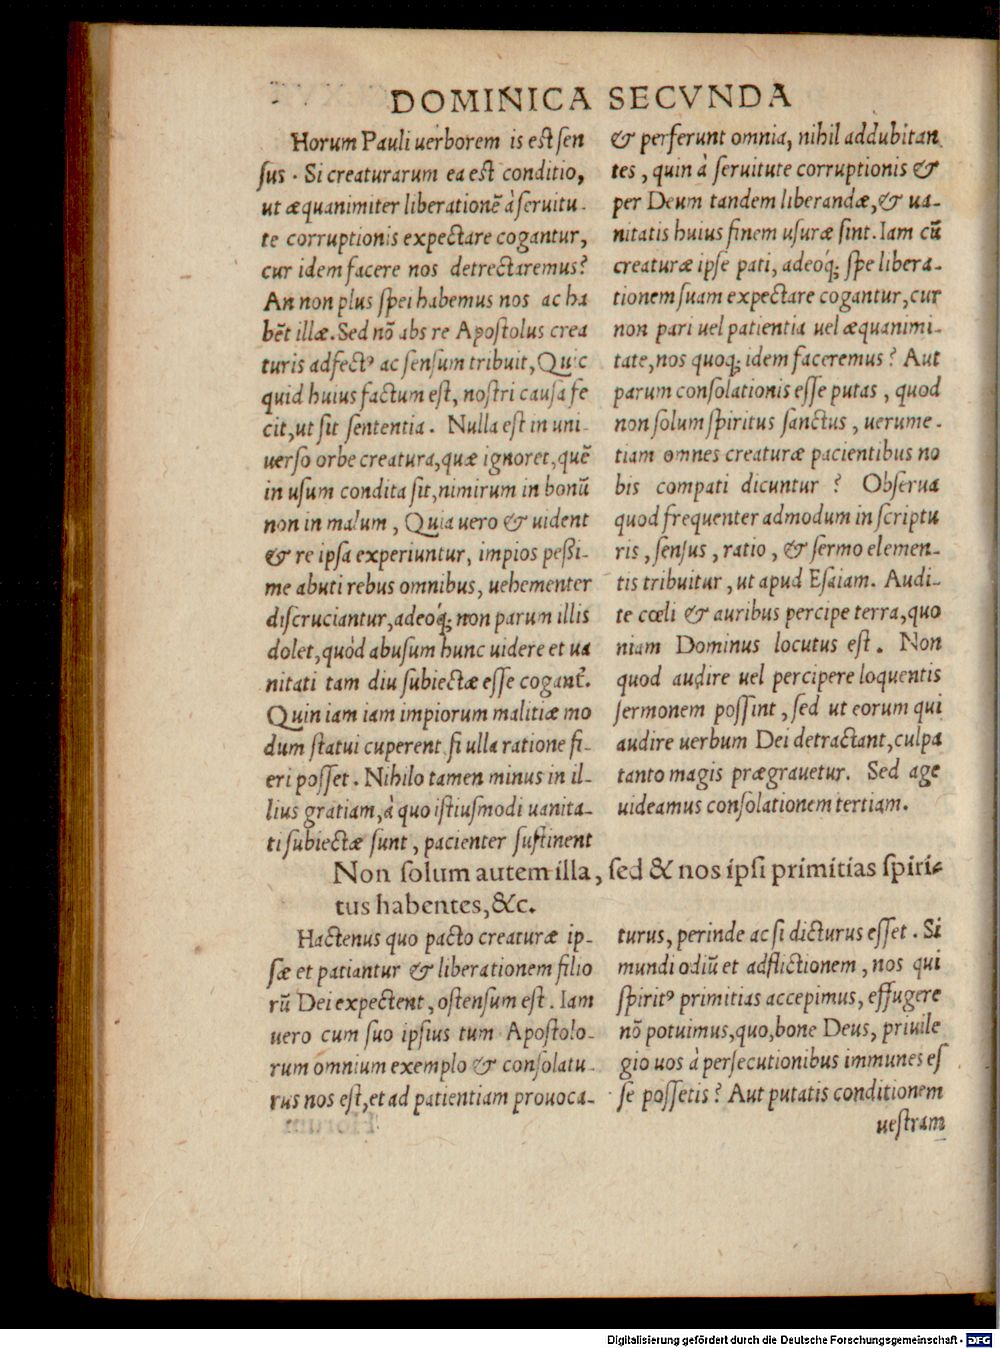 DOMINICA SECVNDA
Horum Pauli uerborem is est sen
sus. Si creaturarum ea est conditio,
ut æquanimiter liberationẽ à seruitu-
te corruptionis expectare cogantur,
cur idem facere nos detrectaremus?
An non plus spei habemus nos ac ha
bẽt illæ. Sed nõ abs re Apostolus crea
turis adfectꝰ ac sensum tribuit, Quic
quid huius factum est, nostri causa fe
cit, ut sit sententia. Nulla est in uni-
uerso orbe creatura, quæ ignoret, quẽ
in usum condita sit, nimirum in bonũ
non in malum, Quia uero & uident
& re ipsa experiuntur, impios peßi-
me abuti rebus omnibus, uehementer
discruciantur, adeoq́; non parum illis
dolet, quòd abusum hunc uidere et ua
nitati tam diu subiectæ esse cogant᷑.
Quin iam iam impiorum malitiæ mo
dum statui cuperent si ulla ratione fi-
eri posset. Nihilo tamen minus in il-
lius gratiam, à quo istiusmodi uanita-
ti subiectæ sunt, pacienter sustinent
& perferunt omnia, nihil addubitan
tes, quin à seruitute corruptionis &
per Deum tandem liberandæ, & ua-
nitatis huius finem usuræ sint. Iam cũ
creaturæ ipse pati, adeoq́; spe libera-
tionem suam expectare cogantur, cur
non pari uel patientia uel æquanimi-
tate, nos quoq; idem faceremus? Aut
parum consolationis esse putas, quod
non solum spiritus sanctus, uerume-
tiam omnes creaturæ pacientibus no
bis compati dicuntur? Obserua
quod frequenter admodum in scriptu
ris, sensus, ratio, & sermo elemen-
tis tribuitur, ut apud Esaiam. Audi-
te cœli & auribus percipe terra, quo
niam Dominus locutus est. Non
quod audire uel percipere loquentis
sermonem possint, sed ut eorum qui
audire uerbum Dei detractant, culpa
tanto magis prægrauetur. Sed age
uideamus consolationem tertiam.
Non solum autem illa, sed & nos ipsi primitias spiri-
tus habentes, &c.
Hactenus quo pacto creaturæ ip-
sæ et patiantur & liberationem filio
rũ Dei expectent, ostensum est. Iam
uero cum suo ipsius tum Apostolo-
rum omnium exemplo & consolatu-
rus nos est, et ad patientiam prouoca-
turus, perinde ac si dicturus esset. Si
mundi odiũ et adflictionem, nos qui
spiritꝰ primitias accepimus, effugere
nõ potuimus, quo, bone Deus, priuile
gio uos à persecutionibus immunes es
se possetis? Aut putatis conditionem
uestram
Digitalisierung gefördert durch die Deutsche Forschungsgemeinschaft - DFG